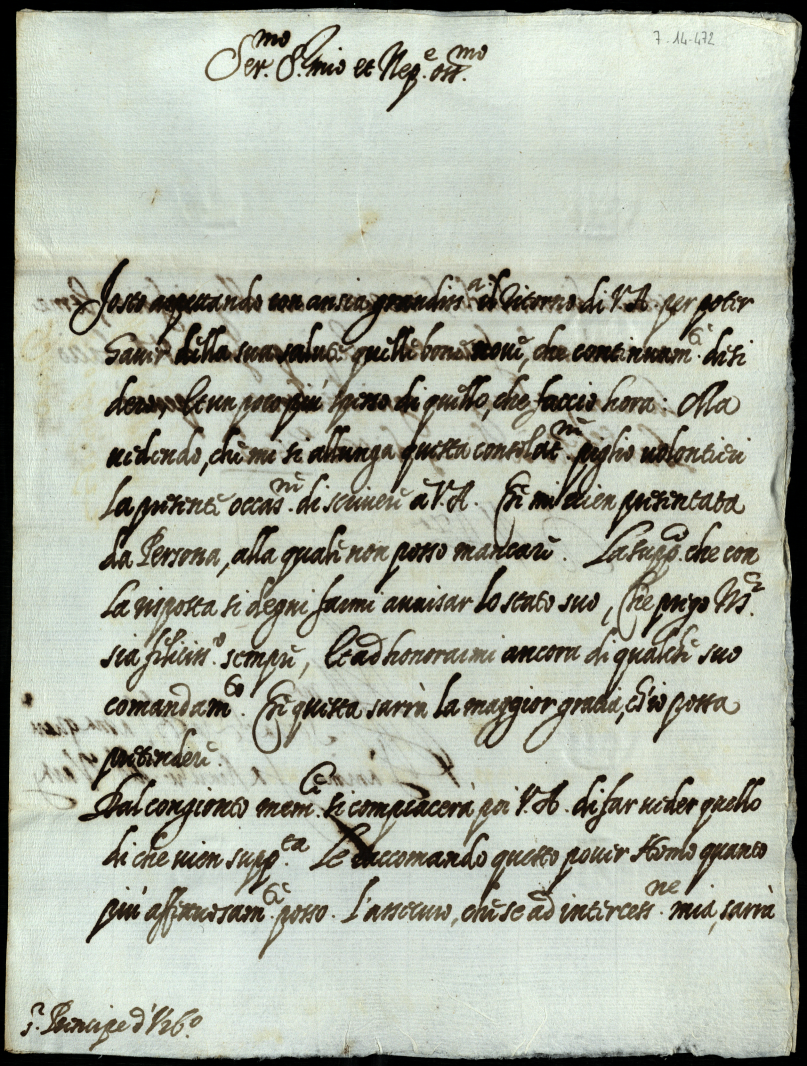 7-14-472
Ser.mo S.r mio et Nep.e oss.mo
Io sto aspettando con ansia grandiss.a il ritorno di V.A. per poter
saver della sua salute quelle bone nove, che continuam.te desi
dero, Et un poco più spesso di quello, che faccio hora: Ma
vedendo, che mi si allunga questa consolat.ne piglio volontieri
la presente occas.ne di scrivere à V.A. Et mi vien presentata
da Persona, alla quale non posso mancare. La supp.co che con
la risposta si degni farmi avvisar lo stato suo, che prego N.S.re
sia feliciss.o sempre, Et ad honorarmi ancora di qualche suo
comandam.to Et questa sarrà la maggior gratia, ch'io possa
pretendere.
Dal congionto mem.le si compiacerà poi V.A. di far veder quello
di che vien supp.ta Le raccomando questo pover Homo quanto
più affettuosam.te posso. L'assicuro, che se ad intercess.ne mia, sarrà
S.r Principe d'Urb.o